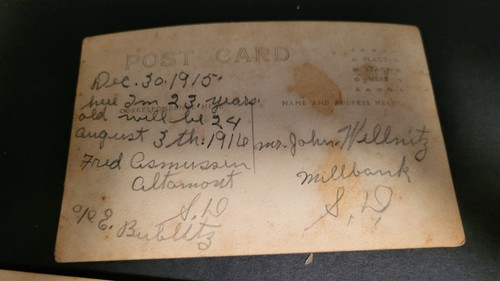 POST CARD
Dec. 30. 1915.
here Im 23. years.
old will be 24
august 3th. 1916
Fred Asmussen
Altamont
S. D
c/o E. Bublitz
PLACE
STAMP
HERE
NAME AND ADDRESS HERE
mr. John Wellnitz
Millbank
S. D.